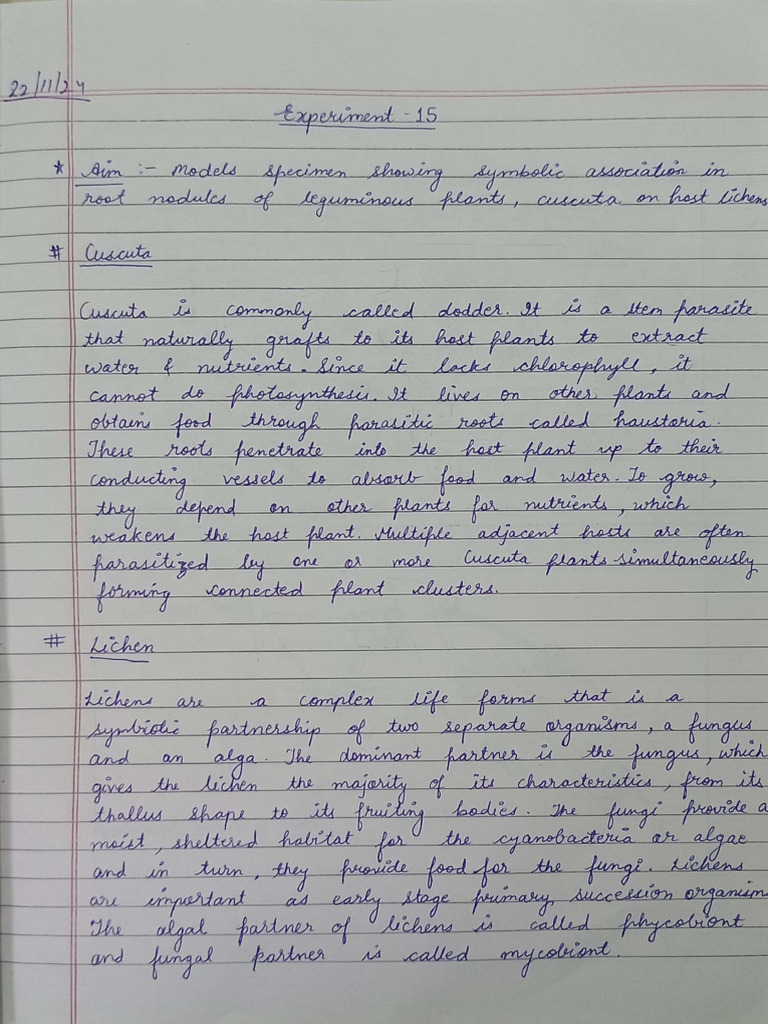 22/11/24
Experiment - 15
* Aim :- Models specimen showing symbolic association in
root nodules of leguminous plants, cuscuta on host lichens
# Cuscuta
Cuscuta is commonly called dodder. It is a stem parasite
that naturally grafts to its host plants to extract
water & nutrients. Since it lacks chlorophyll, it
cannot do photosynthesis. It lives on other plants and
obtains food through parasitic roots called haustoria.
These roots penetrate into the host plant up to their
conducting vessels to absorb food and water. To grow,
they depend on other plants for nutrients, which
weakens the host plant. Multiple adjacent hosts are often
parasitized by one or more Cuscuta plants simultaneously
forming connected plant clusters.
# Lichen
Lichens are a complex life forms that is a
symbiotic partnership of two separate organisms, a fungus
and an alga. The dominant partner is the fungus, which
gives the lichen the majority of its characteristics, from its
thallus shape to its fruiting bodies. The fungi provide a
moist, sheltered habitat for the cyanobacteria or algae
and in turn, they provide food for the fungi. Lichens
are important as early stage primary succession organism
The algal partner of lichens is called phycobiont
and fungal partner is called mycobiont.